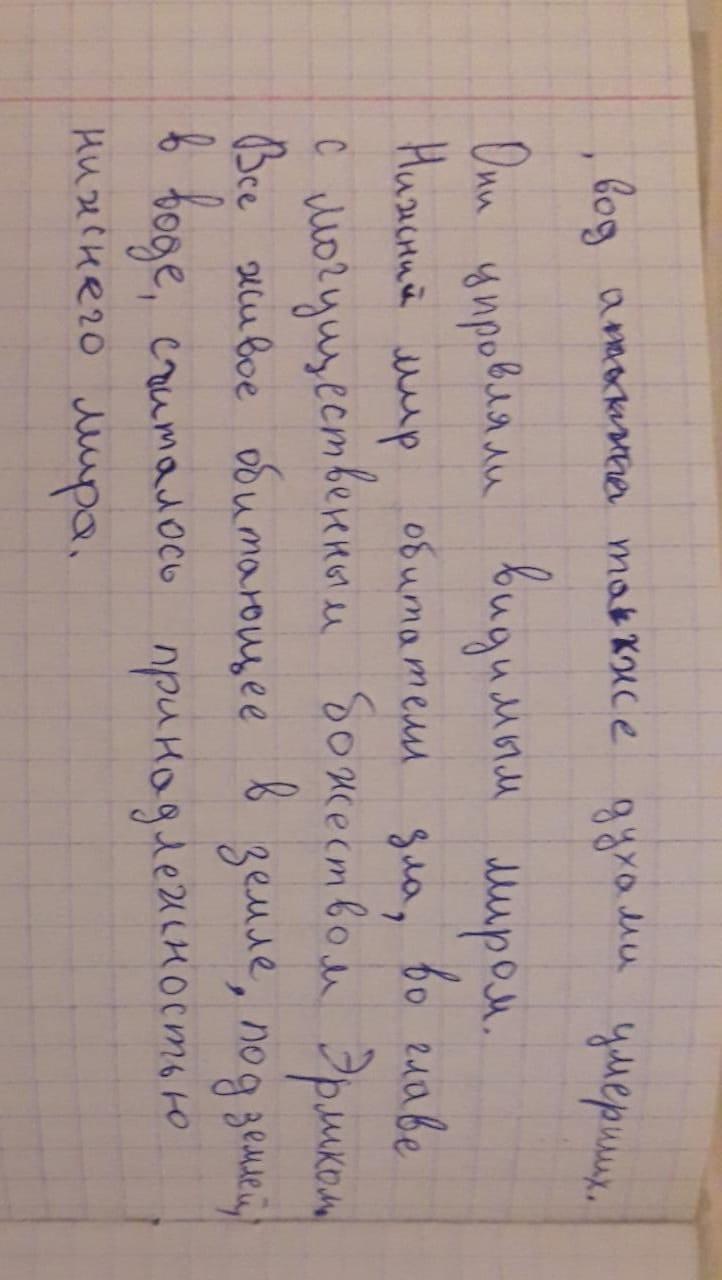 , вод а также духами умерших.
Они упровляли видимым миром.
Нижний мир обитатели зла, во главе
с могущественным божеством Эрликом.
Все живое обитающее в земле, под землей,
в воде, считалось принадлежностью
нижнего мира.